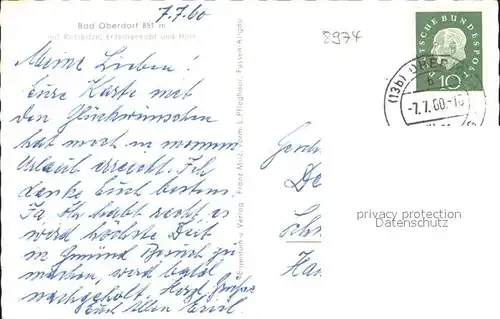 7.7.60
Bad Oberdorf 851 m
8974
DEUTSCHE BUNDESPOST
10
(13b)
-7.7.60.-18
Meine Lieben!
Eure Karte mit
den Glückwünschen
hat mich in meinem
Urlaub erreicht. Ich
danke Euch bestens.
Ja Ihr habt recht, es
wird höchste Zeit
in Gmünd Besuch zu
machen, wird bald
nachgeholt. Herzl. Grüße
Euch Allen
Eigentum u. Verlag Franz Milz vorm. L. Pfleghaar, Füssen-Allgäu
privacy protection
Datenschutz